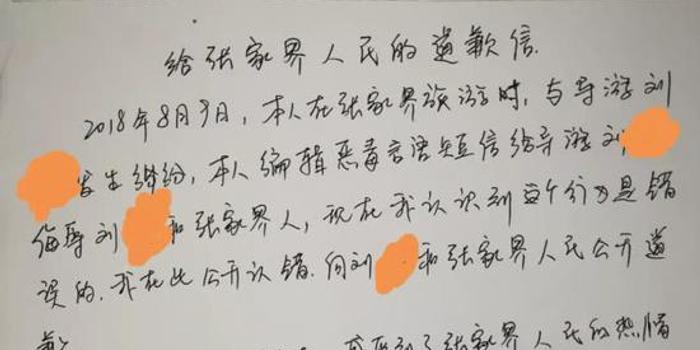 给张家界人民的道歉信.
2018年8月9日,本人在张家界旅游时,与导游刘
发生纠纷,本人编辑恶毒言语短信给导游刘
侮辱刘 和张家界人,现在我认识到这个行为是错
误的.我在此公开认错.向刘 和张家界人民公开道
歉
了张家界人民的热情